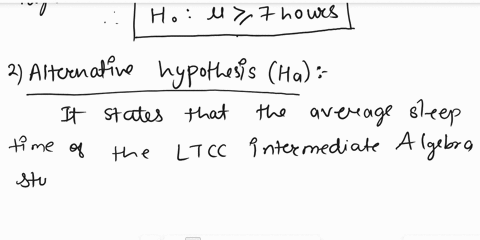 ∴ H₀ : μ ⩾ 7 hours
2) Alternative hypothesis (Ha) :-
It states that the average sleep
time of the LTCC intermediate Algebra
stu